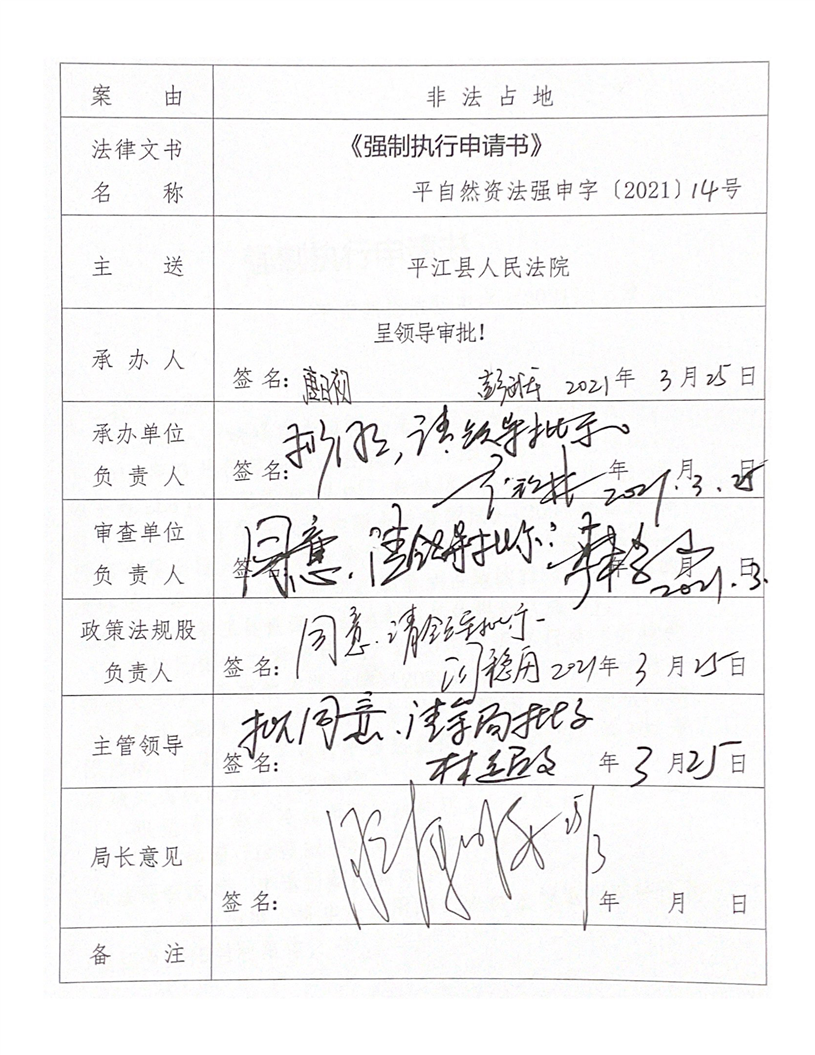 案 由
非法占地
法律文书
名 称
《强制执行申请书》
平自然资法强申字〔2021〕14号
主 送
平江县人民法院
承办人
呈领导审批!
签名: 2021年 3月25日
承办单位
负责人
请领导批示。
签名: 年 月 日
2021.3.25
审查单位
负责人
同意,请领导批示
签名: 年 月 日
2021.3.
政策法规股
负责人
同意.请领导批示
签名: 2021年 3月25日
主管领导
拟同意.请
签名: 年 3月25日
局长意见
签名: 年 月 日
备 注